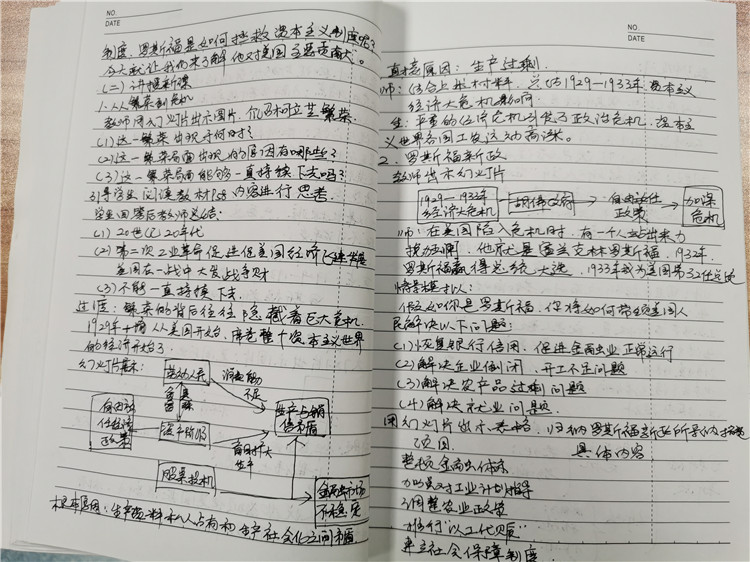 NO.
DATE
制度,罗斯福是如何拯救资本主义制度呢?
今天就让我们来了解他对美国主要贡献大"。
(二)讲授新课
1.从繁荣到危机
教师用幻灯片出示图片,
繁荣
(1)这一繁荣出现于何时?
(2)这一繁荣局面出现的原因有哪些?
(3)这一繁荣局面能够一直持续下去吗?
引导学生阅读教材P 内容进行思考
学生回答后教师总结:
(1)20世纪20年代
(2)第二次工业革命促进美国经济飞速发展
美国在一战中大发战争财
(3)不能一直持续下去.
过渡:繁荣的背后往往隐藏着巨大危机.
1929年 从美国开始,席卷整个资本主义世界
的经济开始了.
幻灯片展示:
劳动人民
消费能力
不足
贫
自由放
任经济
政策
资产阶级
生产与销
售矛盾
盲目扩大
生产
股票投机
金融市场
不稳定
根本原因:生产资料私人占有和生产社会化之间矛盾
NO.
DATE
直接原因:生产过剩.
师:结合上述材料,总结1929—1933年资本主义
经济大危机影响.
生:严重的经济危机引发了政治危机,资本主
义世界各国工农运动高涨.
2.罗斯福新政
教师出示幻灯片
1929—1933年
经济大危机
胡佛政府
自由放任
政策
加深
危机
师:在美国陷入危机时,有一个人站出来力
挽狂澜,他就是富兰克林罗斯福,1932年,
罗斯福赢得总统大选,1933年成为美国第32任总统
情景模拟:
假如你是罗斯福,你将如何带领美国人
民解决以下问题:
(1)恢复银行信用,促进金融业正常运行
(2)解决企业倒闭,开工不足问题
(3)解决农产品过剩问题
(4)解决就业问题.
用幻灯片展示表格,归纳罗斯福新政所采纳措施
项目 具体内容
整顿金融体系
加强对工业计划指导
调整农业政策
推行"以工代赈"
建立社会保障制度.